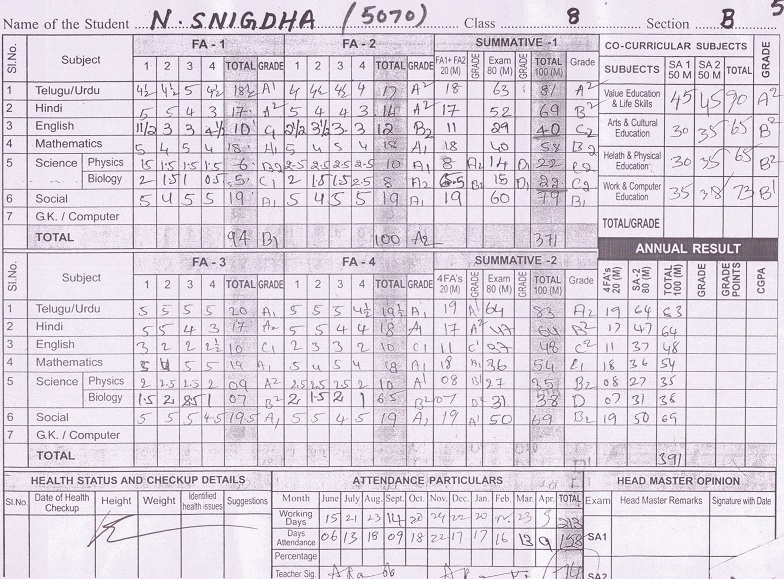 Name of the Student N. SNIGDHA (5070) Class 8 Section B 5
Sl.No. Subject FA - 1 FA - 2 SUMMATIVE -1 CO-CURRICULAR SUBJECTS GRADE
1 2 3 4 TOTAL GRADE 1 2 3 4 TOTAL GRADE FA1+ FA2 20 (M) GRADE Exam 80 (M) GRADE TOTAL 100 (M) Grade SUBJECTS SA 1 50 M SA 2 50 M TOTAL
1 Telugu/Urdu 4½ 4½ 5 4½ 18½ A1 4 4 4½ 4 17 A2 18 63 81 A2
Value Education & Life Skills 45 45 90 A2
2 Hindi 5 5 4 3 17 A2 5 4 4 3 14 A2 17 52 69 B2
Arts & Cultural Education 30 35 65 B2
3 English 11/2 3 3 4½ 10 C1 2½ 3½ 3 3 12 B2 11 29 40 C2
4 Mathematics 5 4 5 4 18 A1 5 4 5 4 18 A1 18 40 58 B2
Helath & Physical Education 30 35 65 B2
5 Science Physics 1.5 1.5 1.5 1.5 6 B2 2.5 2.5 2.5 2.5 10 A1 8 A2 14 D1 22 C2
Biology 2 1.5 1 0.5 5 C1 2 1.5 1.5 2.5 8 A2 6.5 B2 15 D1 22 C2
Work & Computer Education 35 38 73 B1
6 Social 5 4 5 5 19 A1 5 4 5 5 19 A1 19 60 79 B1
7 G.K. / Computer
TOTAL/GRADE
TOTAL 94 B1 100 A2 371
ANNUAL RESULT
Sl.No. Subject FA - 3 FA - 4 SUMMATIVE -2
1 2 3 4 TOTAL GRADE 1 2 3 4 TOTAL GRADE 4FA's 20 (M) GRADE Exam 80 (M) GRADE TOTAL 100 (M) Grade 4FA's 20 (M) SA-2 80 (M) TOTAL 100 (M) GRADE GRADE POINTS CGPA
1 Telugu/Urdu 5 5 5 5 20 A1 5 5 5 4½ 19½ A1 19 A1 64 83 A2 19 64 83
2 Hindi 5 5 4 3 17 A2 5 5 4 4 18 A1 17 A2 47 64 B2 17 47 64
3 English 3 2 2 2½ 10 C1 2 3 3 2 10 C1 11 C1 37 48 C2 11 37 48
4 Mathematics 5 4 5 5 19 A1 5 4 5 4 18 A1 18 A1 36 54 18 36 54
5 Science Physics 2 2.5 2.5 2 09 A2 2.5 2.5 2.5 2 10 A1 08 B1 27 35 B2 08 27 35
Biology 1.5 2 1 07 B2 2 1.5 2 1 6.5 B2 07 31 38 D 07 31 38
6 Social 5 5 5 4.5 19.5 A1 5 5 4 5 19 A1 19 A1 50 69 B2 19 50 69
7 G.K. / Computer
TOTAL 391
HEALTH STATUS AND CHECKUP DETAILS ATTENDANCE PARTICULARS HEAD MASTER OPINION
Sl.No. Date of Health Checkup Height Weight Identified health issues Suggestions Month June July Aug. Sept. Oct. Nov. Dec. Jan. Feb. Mar. Apr. TOTAL Exam Head Master Remarks Signature with Date
Working Days 15 21 23 14 20 24 22 20 23 213
Days Attendance 06 13 18 09 18 22 17 17 16 13 9 158 SA1
Percentage
Teacher Sig. SA2